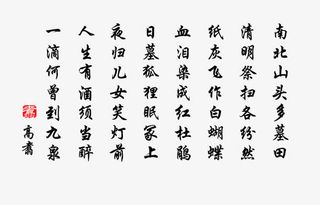 南北山头多墓田
清明祭扫各纷然
纸灰飞作白蝴蝶
血泪染成红杜鹃
日墓狐狸眠冢上
夜归儿女笑灯前
人生有酒须当醉
一滴何曾到九泉
高翥